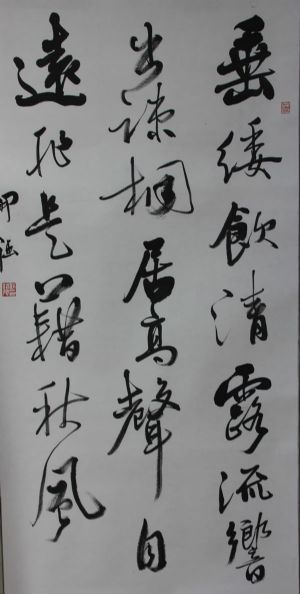 垂緌飲清露流響
出疎桐居高聲自
遠非是藉秋風